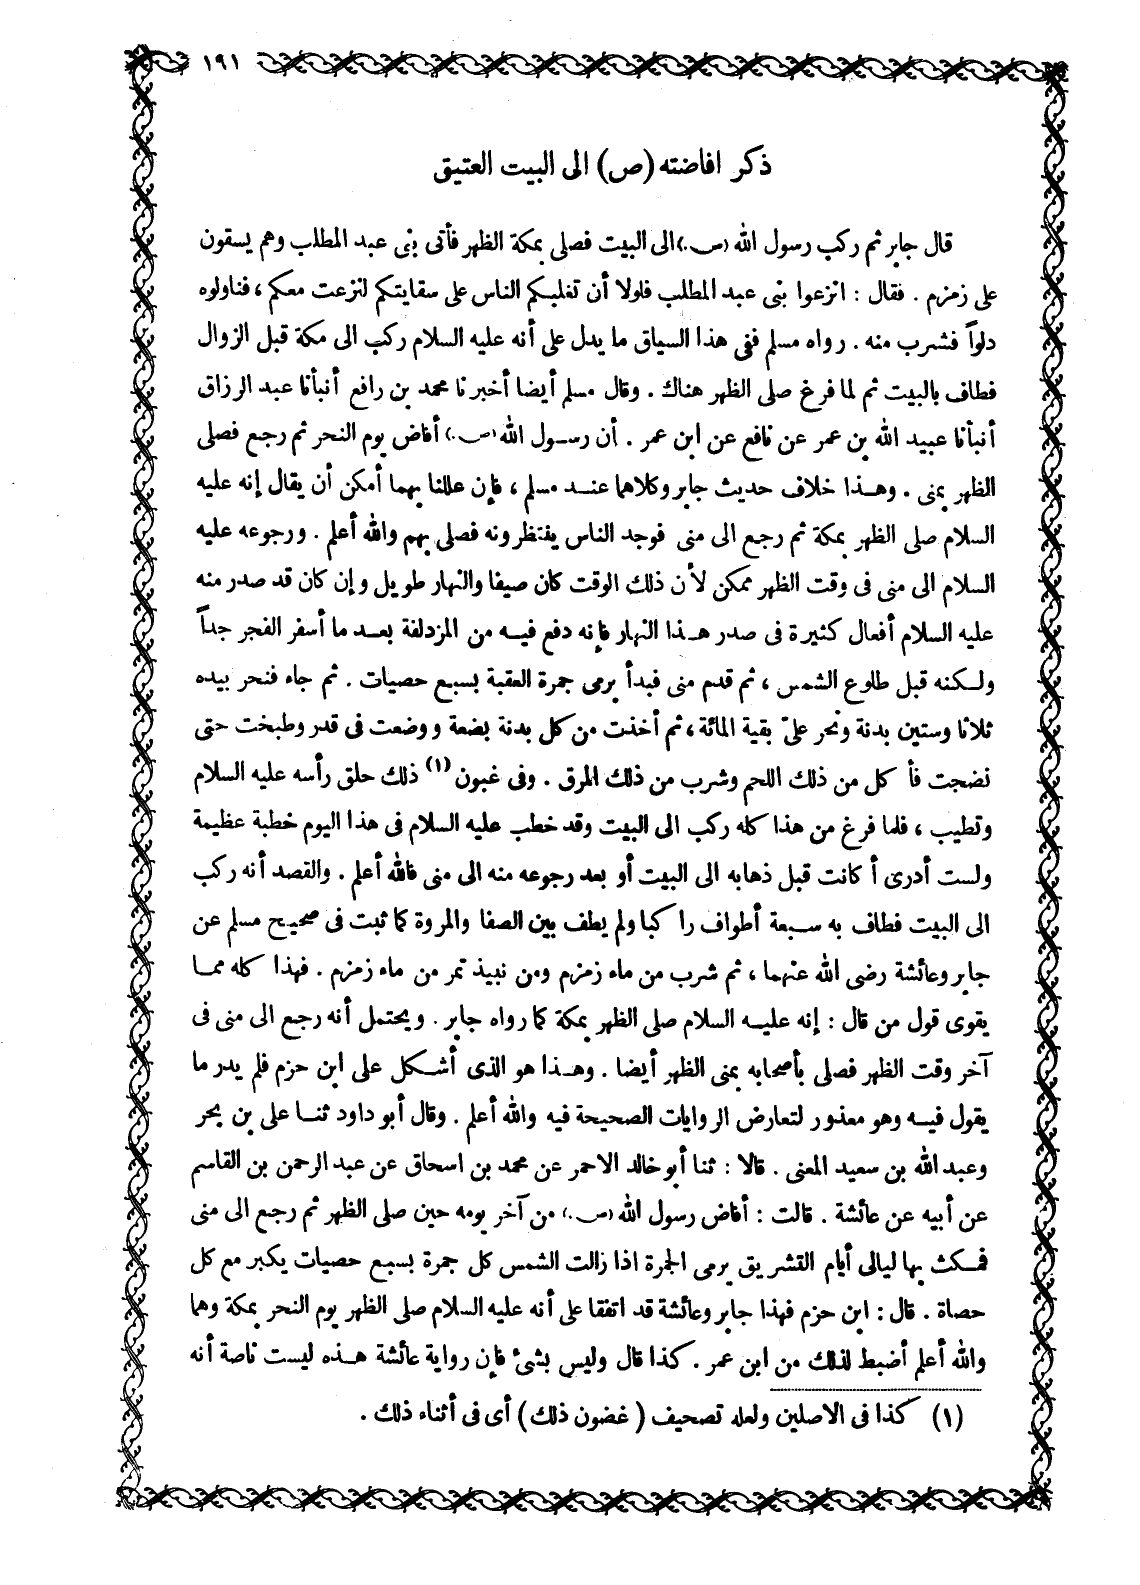 ١٩١
ذكر افاضته (ص) الى البيت العتيق
قال جابر ثم ركب رسول الله (ص.) الى البيت فصلى بمكة الظهر فأتى بنى عبد المطلب وهم يسقون
على زمزم . فقال : انزعوا بنى عبد المطلب فلولا أن تغلبكم الناس على سقايتكم لنزعت معكم ، فناولوه
دلواً فشرب منه . رواه مسلم ففى هذا السياق ما يدل على أنه عليه السلام ركب الى مكة قبل الزوال
فطاف بالبيت ثم لما فرغ صلى الظهر هناك . وقال مسلم أيضا أخبرنا محمد بن رافع أنبأنا عبد الرزاق
أنبأنا عبيد الله بن عمر عن نافع عن ابن عمر . أن رسول الله (ص.) أفاض يوم النحر ثم رجع فصلى
الظهر بمنى . وهذا خلاف حديث جابر وكلاهما عند مسلم ، فإن عللنا بهما أمكن أن يقال إنه عليه
السلام صلى الظهر بمكة ثم رجع الى منى فوجد الناس ينتظرونه فصلى بهم والله أعلم . ورجوعه عليه
السلام الى منى فى وقت الظهر ممكن لأن ذلك الوقت كان صيفا والنهار طويل وإن كان قد صدر منه
عليه السلام أفعال كثيرة فى صدر هذا النهار فإنه دفع فيه من المزدلفة بعد ما أسفر الفجر جداً
ولكنه قبل طلوع الشمس ، ثم قدم منى فبدأ برمى جمرة العقبة بسبع حصيات . ثم جاء فنحر بيده
ثلاثا وستين بدنة ونحر علىّ بقية المائة ، ثم أخذت من كل بدنة بضعة ووضعت فى قدر وطبخت حتى
نضجت فأكل من ذلك اللحم وشرب من ذلك المرق . وفى غبون (١) ذلك حلق رأسه عليه السلام
وتطيب ، فلما فرغ من هذا كله ركب الى البيت وقد خطب عليه السلام فى هذا اليوم خطبة عظيمة
ولست أدرى أكانت قبل ذهابه الى البيت أو بعد رجوعه منه الى منى فالله أعلم . والقصد أنه ركب
الى البيت فطاف به سبعة أطواف راكبا ولم يطف بين الصفا والمروة كما ثبت فى صحيح مسلم عن
جابر وعائشة رضى الله عنهما ، ثم شرب من ماء زمزم ومن نبيذ تمر من ماء زمزم . فهذا كله مما
يقوى قول من قال : إنه عليه السلام صلى الظهر بمكة كما رواه جابر . ويحتمل أنه رجع الى منى فى
آخر وقت الظهر فصلى بأصحابه بمنى الظهر أيضا . وهذا هو الذى أشكل على ابن حزم فلم يدر ما
يقول فيه وهو معذور لتعارض الروايات الصحيحة فيه والله أعلم . وقال أبو داود ثنا على بن بحر
وعبد الله بن سعيد المعنى . قالا : ثنا أبو خالد الاحمر عن محمد بن اسحاق عن عبد الرحمن بن القاسم
عن أبيه عن عائشة . قالت : أفاض رسول الله (ص.) من آخر يومه حين صلى الظهر ثم رجع الى منى
فمكث بها ليالى أيام التشريق يرمى الجمرة اذا زالت الشمس كل جمرة بسبع حصيات يكبر مع كل
حصاة . قال : ابن حزم فهذا جابر وعائشة قد اتفقا على أنه عليه السلام صلى الظهر يوم النحر بمكة وهما
والله أعلم أضبط لذلك من ابن عمر . كذا قال وليس بشئ فإن رواية عائشة هذه ليست ناصة أنه
(١) كذا فى الاصلين ولعله تصحيف ( غضون ذلك ) أى فى أثناء ذلك .